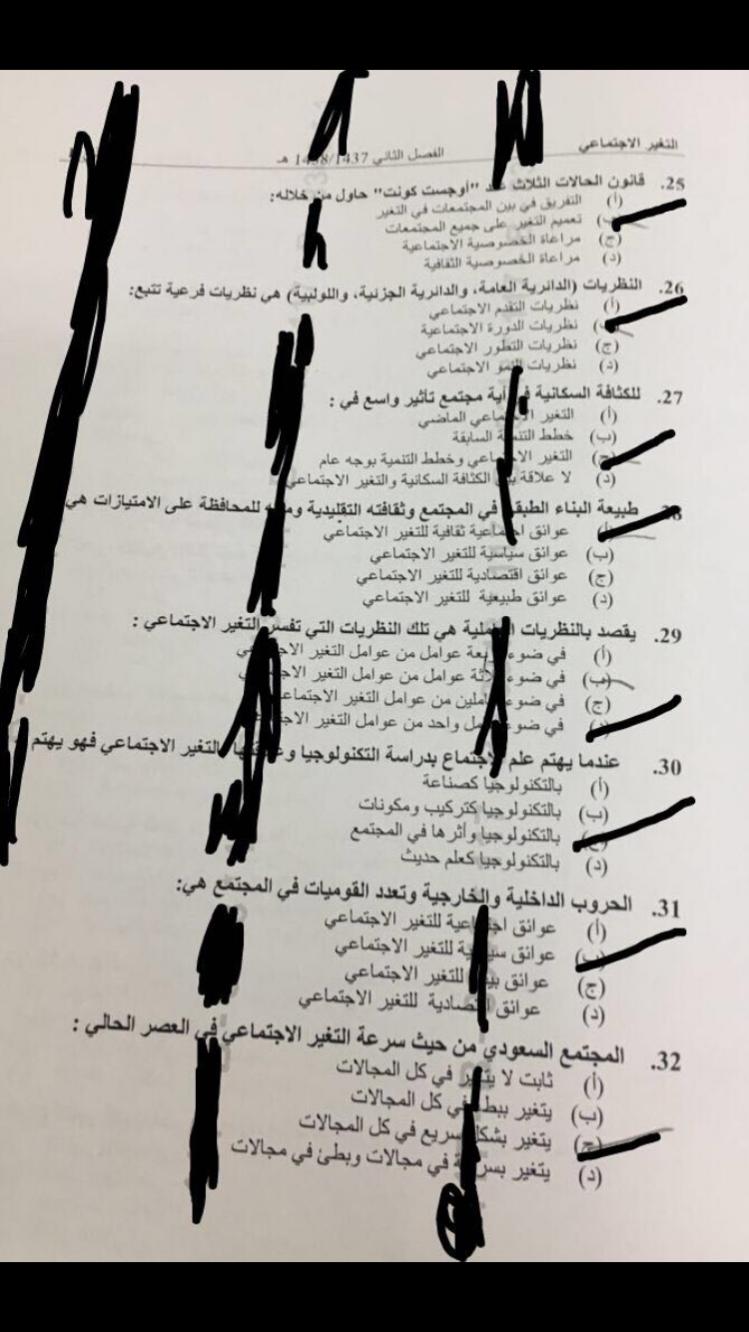 التغير الاجتماعي
الفصل الثاني 1438/1437 هـ
25. قانون الحالات الثلاث عند "أوجست كونت" حاول من خلاله:
(أ) التفريق في بين المجتمعات في التغير
(ب) تعميم التغير على جميع المجتمعات
(ج) مراعاة الخصوصية الاجتماعية
(د) مراعاة الخصوصية الثقافية
26. النظريات (الدائرية العامة، والدائرية الجزئية، واللولبية) هي نظريات فرعية تتبع:
(أ) نظريات التقدم الاجتماعي
(ب) نظريات الدورة الاجتماعية
(ج) نظريات التطور الاجتماعي
(د) نظريات النمو الاجتماعي
27. للكثافة السكانية في أية مجتمع تأثير واسع في :
(أ) التغير الاجتماعي الماضي
(ب) خطط التنمية السابقة
(ج) التغير الاجتماعي وخطط التنمية بوجه عام
(د) لا علاقة بين الكثافة السكانية والتغير الاجتماعي
28. طبيعة البناء الطبقي في المجتمع وثقافته التقليدية للمحافظة على الامتيازات هي
(أ) عوائق اجتماعية ثقافية للتغير الاجتماعي
(ب) عوائق سياسية للتغير الاجتماعي
(ج) عوائق اقتصادية للتغير الاجتماعي
(د) عوائق طبيعية للتغير الاجتماعي
29. يقصد بالنظريات العاملية هي تلك النظريات التي تفسر التغير الاجتماعي :
(أ) في ضوء أربعة عوامل من عوامل التغير الاجتماعي
(ب) في ضوء ثلاثة عوامل من عوامل التغير الاجتماعي
(ج) في ضوء عاملين من عوامل التغير الاجتماعي
(د) في ضوء عامل واحد من عوامل التغير الاجتماعي
30. عندما يهتم علم الاجتماع بدراسة التكنولوجيا وعلاقتها بالتغير الاجتماعي فهو يهتم
(أ) بالتكنولوجيا كصناعة
(ب) بالتكنولوجيا كتركيب ومكونات
(ج) بالتكنولوجيا وأثرها في المجتمع
(د) بالتكنولوجيا كعلم حديث
31. الحروب الداخلية والخارجية وتعدد القوميات في المجتمع هي:
(أ) عوائق اجتماعية للتغير الاجتماعي
(ب) عوائق سياسية للتغير الاجتماعي
(ج) عوائق بيئية للتغير الاجتماعي
(د) عوائق اقتصادية للتغير الاجتماعي
32. المجتمع السعودي من حيث سرعة التغير الاجتماعي في العصر الحالي :
(أ) ثابت لا يتغير في كل المجالات
(ب) يتغير ببطء في كل المجالات
(ج) يتغير بشكل سريع في كل المجالات
(د) يتغير بسرعة في مجالات وبطئ في مجالات